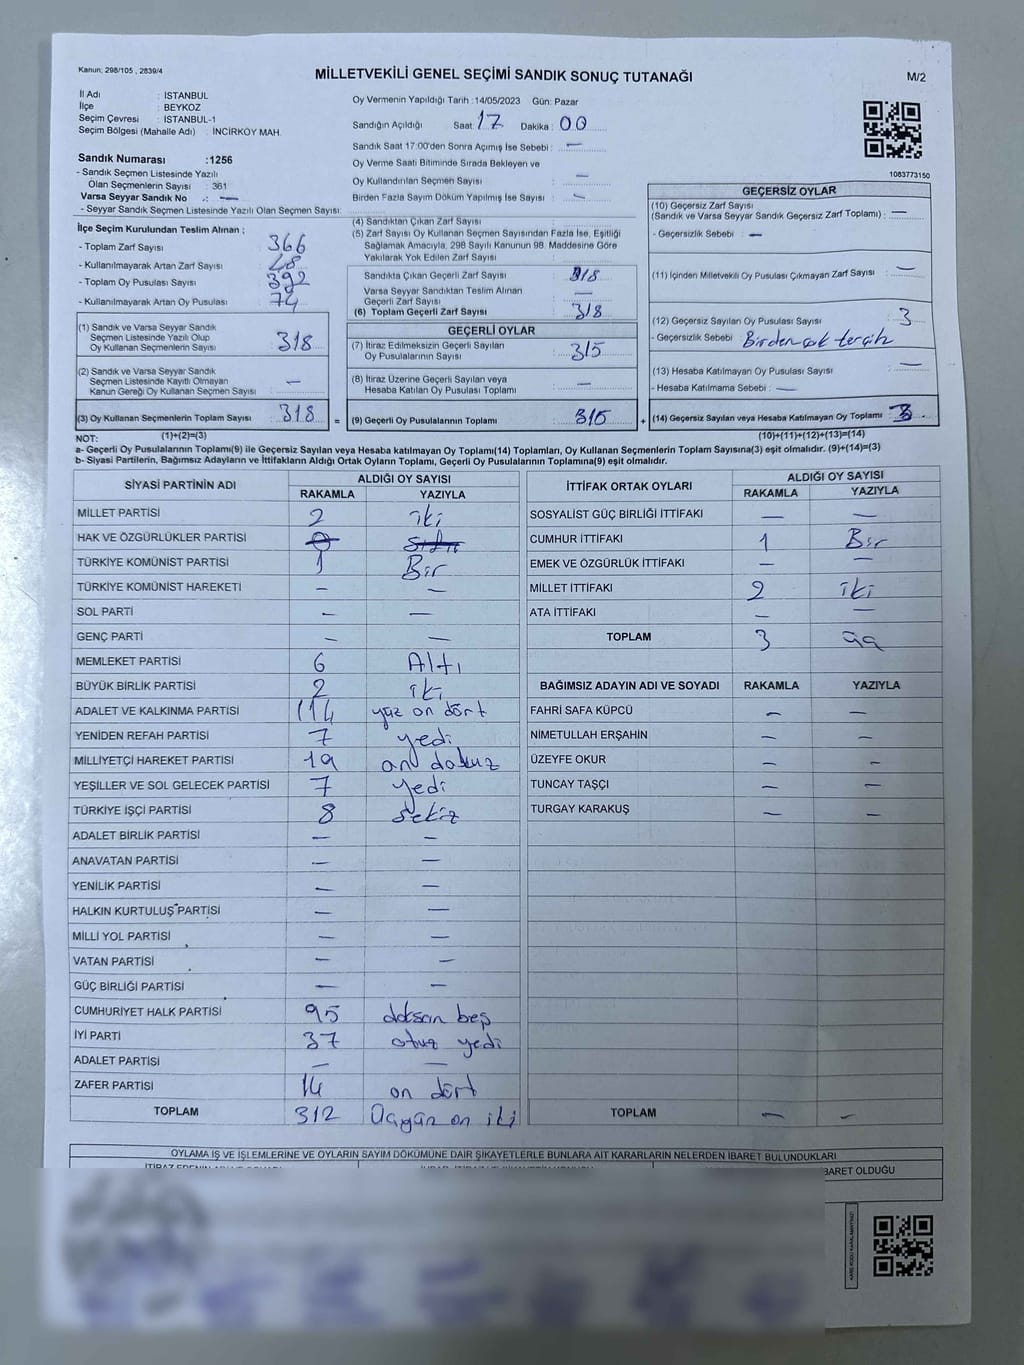 Kanun: 298/105 , 2839/4
MİLLETVEKİLİ GENEL SEÇİMİ SANDIK SONUÇ TUTANAĞI
M/2
İl Adı : İSTANBUL
İlçe : BEYKOZ
Seçim Çevresi : İSTANBUL-1
Seçim Bölgesi (Mahalle Adı) : İNCİRKÖY MAH.
Sandık Numarası :1256
- Sandık Seçmen Listesinde Yazılı
Olan Seçmenlerin Sayısı : 361
Varsa Seyyar Sandık No .: —
- Seyyar Sandık Seçmen Listesinde Yazılı Olan Seçmen Sayısı:
İlçe Seçim Kurulundan Teslim Alınan ;
- Toplam Zarf Sayısı 366
- Kullanılmayarak Artan Zarf Sayısı 48
- Toplam Oy Pusulası Sayısı 392
- Kullanılmayarak Artan Oy Pusulası 74
(1) Sandık ve Varsa Seyyar Sandık
Seçmen Listesinde Yazılı Olup
Oy Kullanan Seçmenlerin Sayısı 318
(2) Sandık ve Varsa Seyyar Sandık
Seçmen Listesinde Kayıtlı Olmayan
Kanun Gereği Oy Kullanan Seçmen Sayısı : —
(3) Oy Kullanan Seçmenlerin Toplam Sayısı 318 =
(1)+(2)=(3)
Oy Vermenin Yapıldığı Tarih :14/05/2023 Gün: Pazar
Sandığın Açıldığı Saat: 17 Dakika : 00
Sandık Saat 17:00'den Sonra Açımış İse Sebebi : —
Oy Verme Saati Bitiminde Sırada Bekleyen ve
Oy Kullandırılan Seçmen Sayısı —
Birden Fazla Sayım Döküm Yapılmış İse Sayısı : —
(4) Sandıktan Çıkan Zarf Sayısı
(5) Zarf Sayısı Oy Kullanan Seçmen Sayısından Fazla İse, Eşitliği
Sağlamak Amacıyla, 298 Sayılı Kanunun 98. Maddesine Göre
Yakılarak Yok Edilen Zarf Sayısı
Sandıkta Çıkan Geçerli Zarf Sayısı 318
Varsa Seyyar Sandıktan Teslim Alınan
Geçerli Zarf Sayısı —
(6) Toplam Geçerli Zarf Sayısı 318
GEÇERLİ OYLAR
(7) İtiraz Edilmeksizin Geçerli Sayılan
Oy Pusulalarının Sayısı 315
(8) İtiraz Üzerine Geçerli Sayılan veya
Hesaba Katılan Oy Pusulası Toplamı —
(9) Geçerli Oy Pusulalarının Toplamı 315 +
1083773150
GEÇERSİZ OYLAR
(10) Geçersiz Zarf Sayısı
(Sandık ve Varsa Seyyar Sandık Geçersiz Zarf Toplamı) : —
- Geçersizlik Sebebi : —
(11) İçinden Milletvekili Oy Pusulası Çıkmayan Zarf Sayısı : —
(12) Geçersiz Sayılan Oy Pusulası Sayısı : 3
- Geçersizlik Sebebi : Birden çok tercih
(13) Hesaba Katılmayan Oy Pusulası Sayısı —
- Hesaba Katılmama Sebebi : —
(14) Geçersiz Sayılan veya Hesaba Katılmayan Oy Toplamı : 3
(10)+(11)+(12)+(13)=(14)
NOT:
a- Geçerli Oy Pusulalarının Toplamı(9) ile Geçersiz Sayılan veya Hesaba katılmayan Oy Toplamı(14) Toplamları, Oy Kullanan Seçmenlerin Toplam Sayısına(3) eşit olmalıdır. (9)+(14)=(3)
b- Siyasi Partilerin, Bağımsız Adayların ve İttifakların Aldığı Ortak Oyların Toplamı, Geçerli Oy Pusulalarının Toplamına(9) eşit olmalıdır.
SİYASİ PARTİNİN ADI ALDIĞI OY SAYISI
RAKAMLA YAZIYLA
MİLLET PARTİSİ 2 iki
HAK VE ÖZGÜRLÜKLER PARTİSİ
TÜRKİYE KOMÜNİST PARTİSİ 1 Bir
TÜRKİYE KOMÜNİST HAREKETİ — —
SOL PARTİ — —
GENÇ PARTİ — —
MEMLEKET PARTİSİ 6 Altı
BÜYÜK BİRLİK PARTİSİ 2 iki
ADALET VE KALKINMA PARTİSİ 114 yüz on dört
YENİDEN REFAH PARTİSİ 7 yedi
MİLLİYETÇİ HAREKET PARTİSİ 19 on dokuz
YEŞİLLER VE SOL GELECEK PARTİSİ 7 yedi
TÜRKİYE İŞÇİ PARTİSİ 8 sekiz
ADALET BİRLİK PARTİSİ — —
ANAVATAN PARTİSİ — —
YENİLİK PARTİSİ — —
HALKIN KURTULUŞ PARTİSİ — —
MİLLİ YOL PARTİSİ — —
VATAN PARTİSİ — —
GÜÇ BİRLİĞİ PARTİSİ — —
CUMHURİYET HALK PARTİSİ 95 doksan beş
İYİ PARTİ 37 otuz yedi
ADALET PARTİSİ — —
ZAFER PARTİSİ 14 on dört
TOPLAM 312 Üçyün on iki
İTTİFAK ORTAK OYLARI ALDIĞI OY SAYISI
RAKAMLA YAZIYLA
SOSYALİST GÜÇ BİRLİĞİ İTTİFAKI — —
CUMHUR İTTİFAKI 1 Bir
EMEK VE ÖZGÜRLÜK İTTİFAKI — —
MİLLET İTTİFAKI 2 iki
ATA İTTİFAKI — —
TOPLAM 3 üç
BAĞIMSIZ ADAYIN ADI VE SOYADI RAKAMLA YAZIYLA
FAHRİ SAFA KÜPCÜ — —
NİMETULLAH ERŞAHİN — —
ÜZEYFE OKUR — —
TUNCAY TAŞÇI — —
TURGAY KARAKUŞ — —
TOPLAM — —
OYLAMA İŞ VE İŞLEMLERİNE VE OYLARIN SAYIM DÖKÜMÜNE DAİR ŞİKAYETLERLE BUNLARA AİT KARARLARIN NELERDEN İBARET BULUNDUKLARI
BARET OLDUĞU